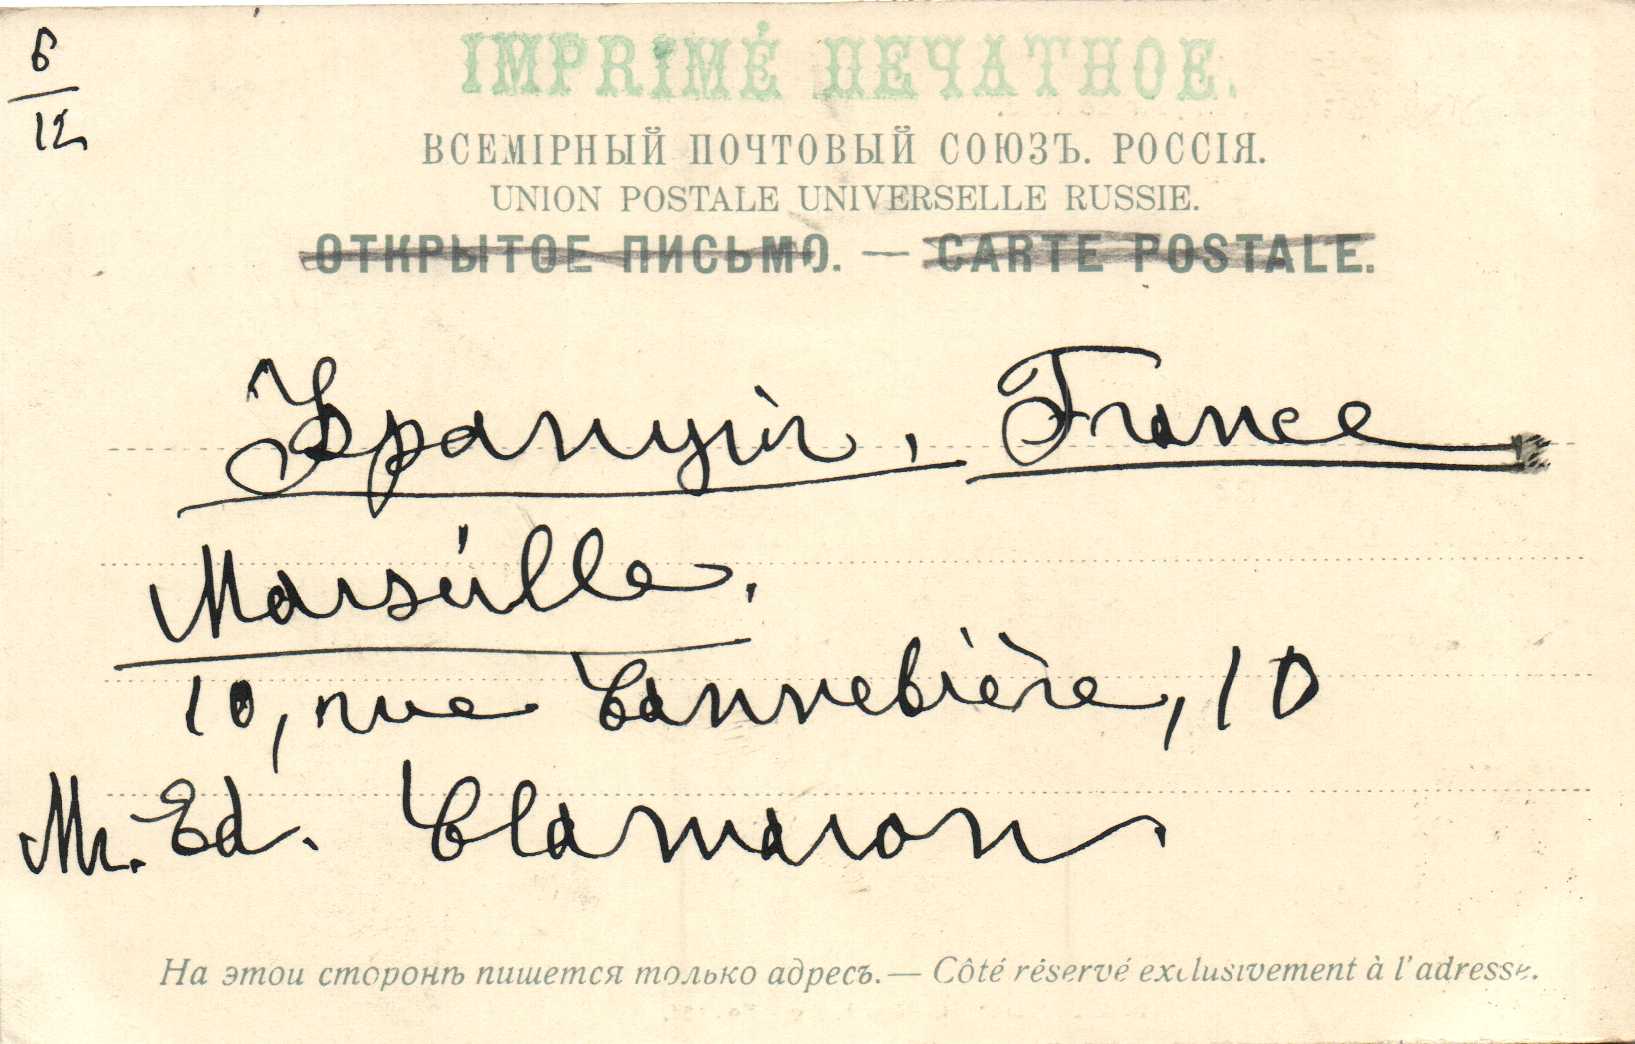 6
12
IMPRIMÉ ПЕЧАТНОЕ.
ВСЕМІРНЫЙ ПОЧТОВЫЙ СОЮЗЪ. РОССІЯ.
UNION POSTALE UNIVERSELLE RUSSIE.
ОТКРЫТОЕ ПИСЬМО. — CARTE POSTALE.
Франція, France
Marseille,
10, rue Cannebière, 10
Mr. Ed. Clamaron
На этои сторонѣ пишется только адресъ. — Côté réservé exclusivement à l'adresse.